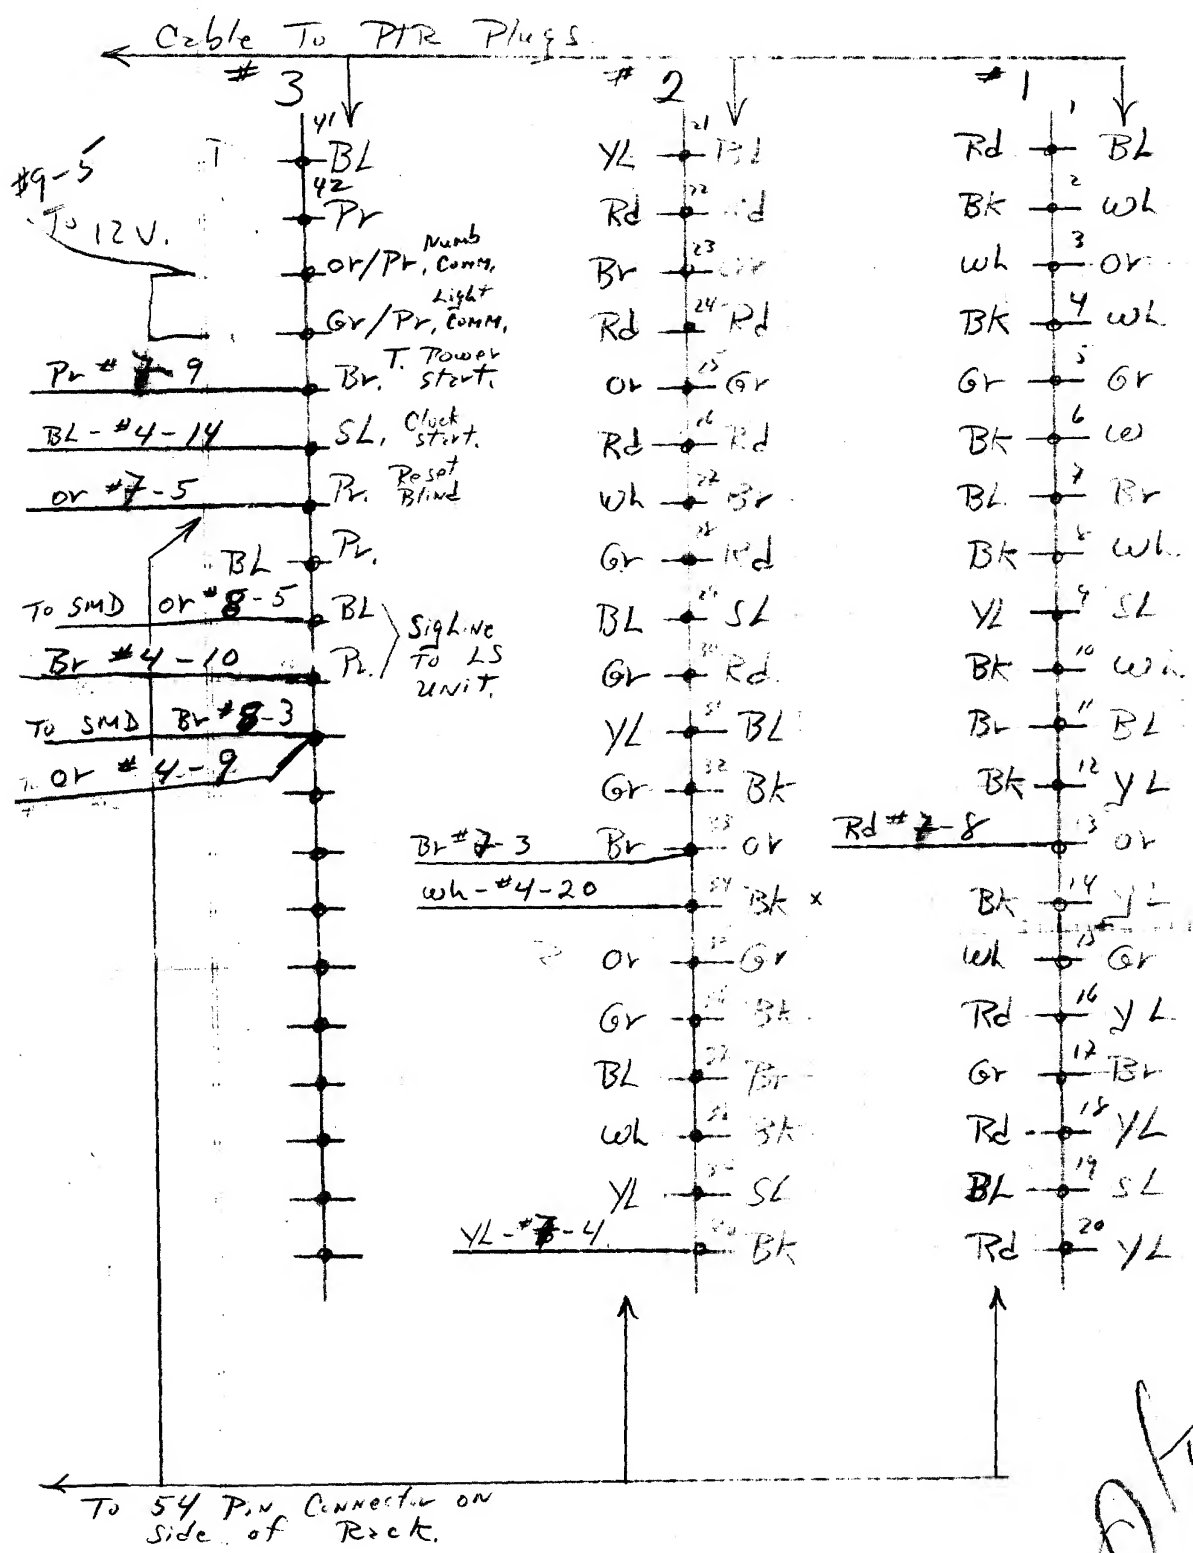 Cable To PTR Plugs
# 3
# 2
# 1
41
BL
42
Pr
#9-5
To 12 V.
or/Pr, Numb Comm,
Gr/Pr, Light Comm,
Pr # 7-9 Br. T. Power Start.
BL - #4-14 SL, Clock Start.
or #7-5 Pr. Reset Blind
BL Pr.
To SMD or #8-5 BL
Br #4-10 Pr.
Sig Line
To LS
Unit.
To SMD Br #8-3
or # 4-9
YL 21 BL
Rd 22 Rd
Br 23
Rd 24 Rd
or Gr
Rd 26 Rd
Wh 27 Br
Gr 28 Rd
BL SL
Gr 30 Rd
YL 31 BL
Gr 32 BK
Br #7-3 Br 33 or
Wh - #4-20 34 BK x
or Gr
Gr BK
BL 37 Br
Wh BK
YL SL
YL - #7-4 BK
Rd 1 BL
BK 2 Wh
Wh 3 or
BK 4 Wh
Gr 5 Gr
BK 6 W
BL 7 Br
BK 8 Wh
YL 9 SL
BK 10 Wh
Br 11 BL
BK 12 YL
Rd # 7-8 13 or
BK 14 YL
Wh 15 Gr
Rd 16 YL
Gr 17 Br
Rd 18 YL
BL 19 SL
Rd 20 YL
To 54 Pin Connector on
Side of Rack.